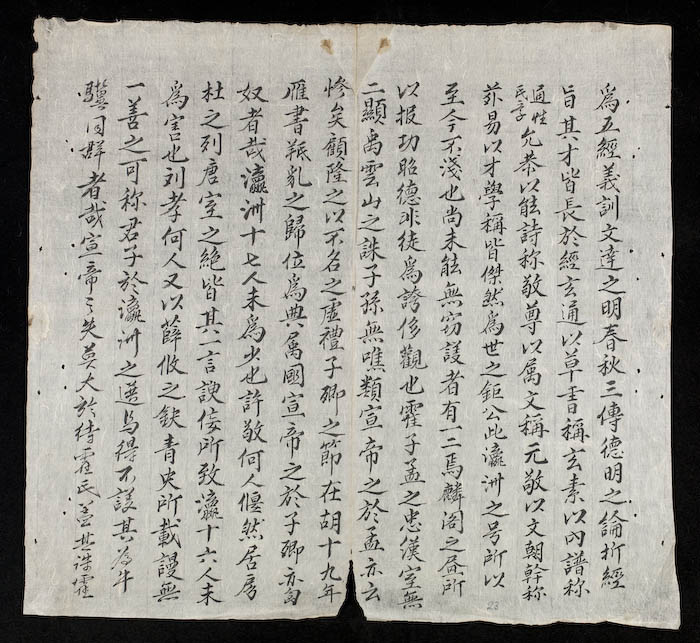 爲五經義訓文達之明春秋三傳德明之論析經
旨其才皆長於經玄通以草書稱玄素以內譜称
通性民享允恭以能詩称敬尊以属文稱元敬以文朝幹称
易以才學稱皆傑然爲世之鉅公此瀛洲之号所以
至今不淺也尚未能無窃議者有一二焉麟阁之所
以报功昭德非徒爲誇侈觀也霍子孟之忠漢室無
二顯禹雲山之誅子孫無噍類宣帝之於孟亦云
惨矣顧隆之以不名之虚禮子卿之節在胡十九年
雁書羝乳之歸位爲典属國宣帝之於子卿亦匈
奴者哉瀛洲十七人未爲少也許敬何人偃然居房
杜之列唐室之绝皆其一言諛侫所致瀛十六人未
爲害也刘孝何人又以薛攸之缺青史所載謾無
一善之可称君子於瀛洲之選烏得不議其為牛
驥同群者哉宣帝之失莫大於待霍氏豈其誅霍
23